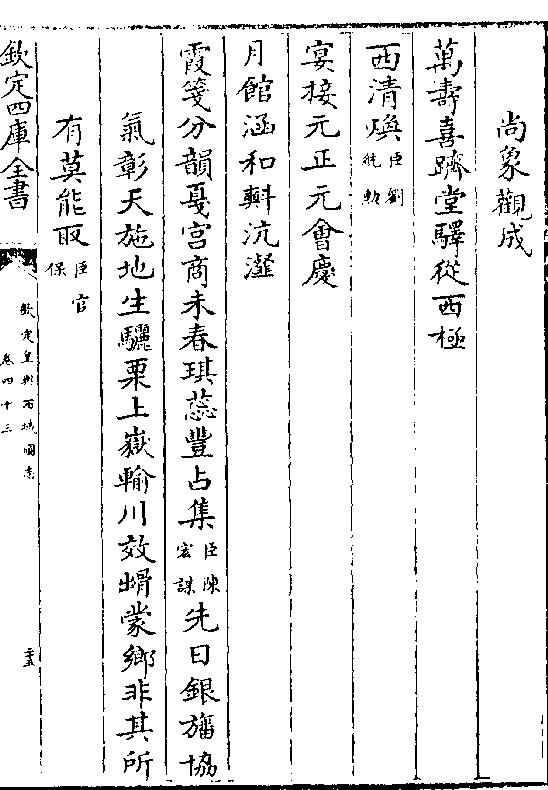 尚象觀成
萬壽喜躋堂驛從西極
西清煥臣劉統勲
宴接元正元會慶
月館涵和斟沆瀣
霞箋分韻戛宫商未春琪蕊豐占集臣陳宏謀先日銀旛協
氣彰天施地生驪栗上嶽輸川效蝟蒙鄉非其所
有莫能取臣官保
欽定四庫全書
欽定皇輿西域圖志
卷四十三
二十五